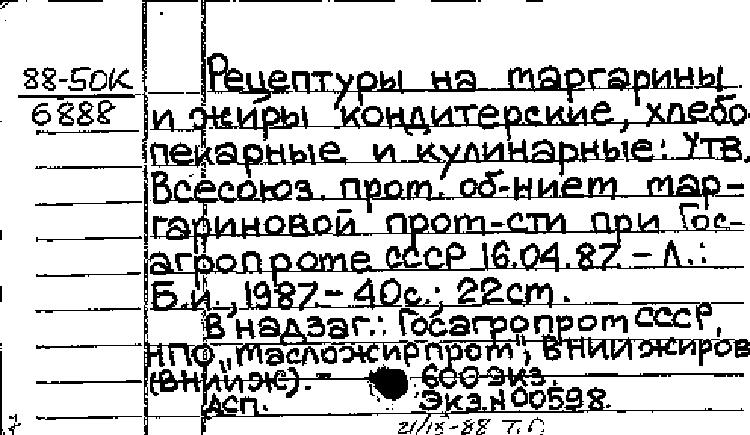 88-50К
6888
Рецептуры на маргарины
и жиры кондитерские, хлебо-
пекарные и кулинарные: Утв.
Всесоюз. пром. об-нием мар-
гариновой пром-сти при Гос-
агропроме СССР 16.04.87. - Л.:
Б.и., 1987. - 40с.; 22см.
В надзаг.: Госагропром СССР,
НПО „Масложирпром", ВНИИжиров
(ВНИИЖ). - 600 экз.
АСП. Экз.N 00598.